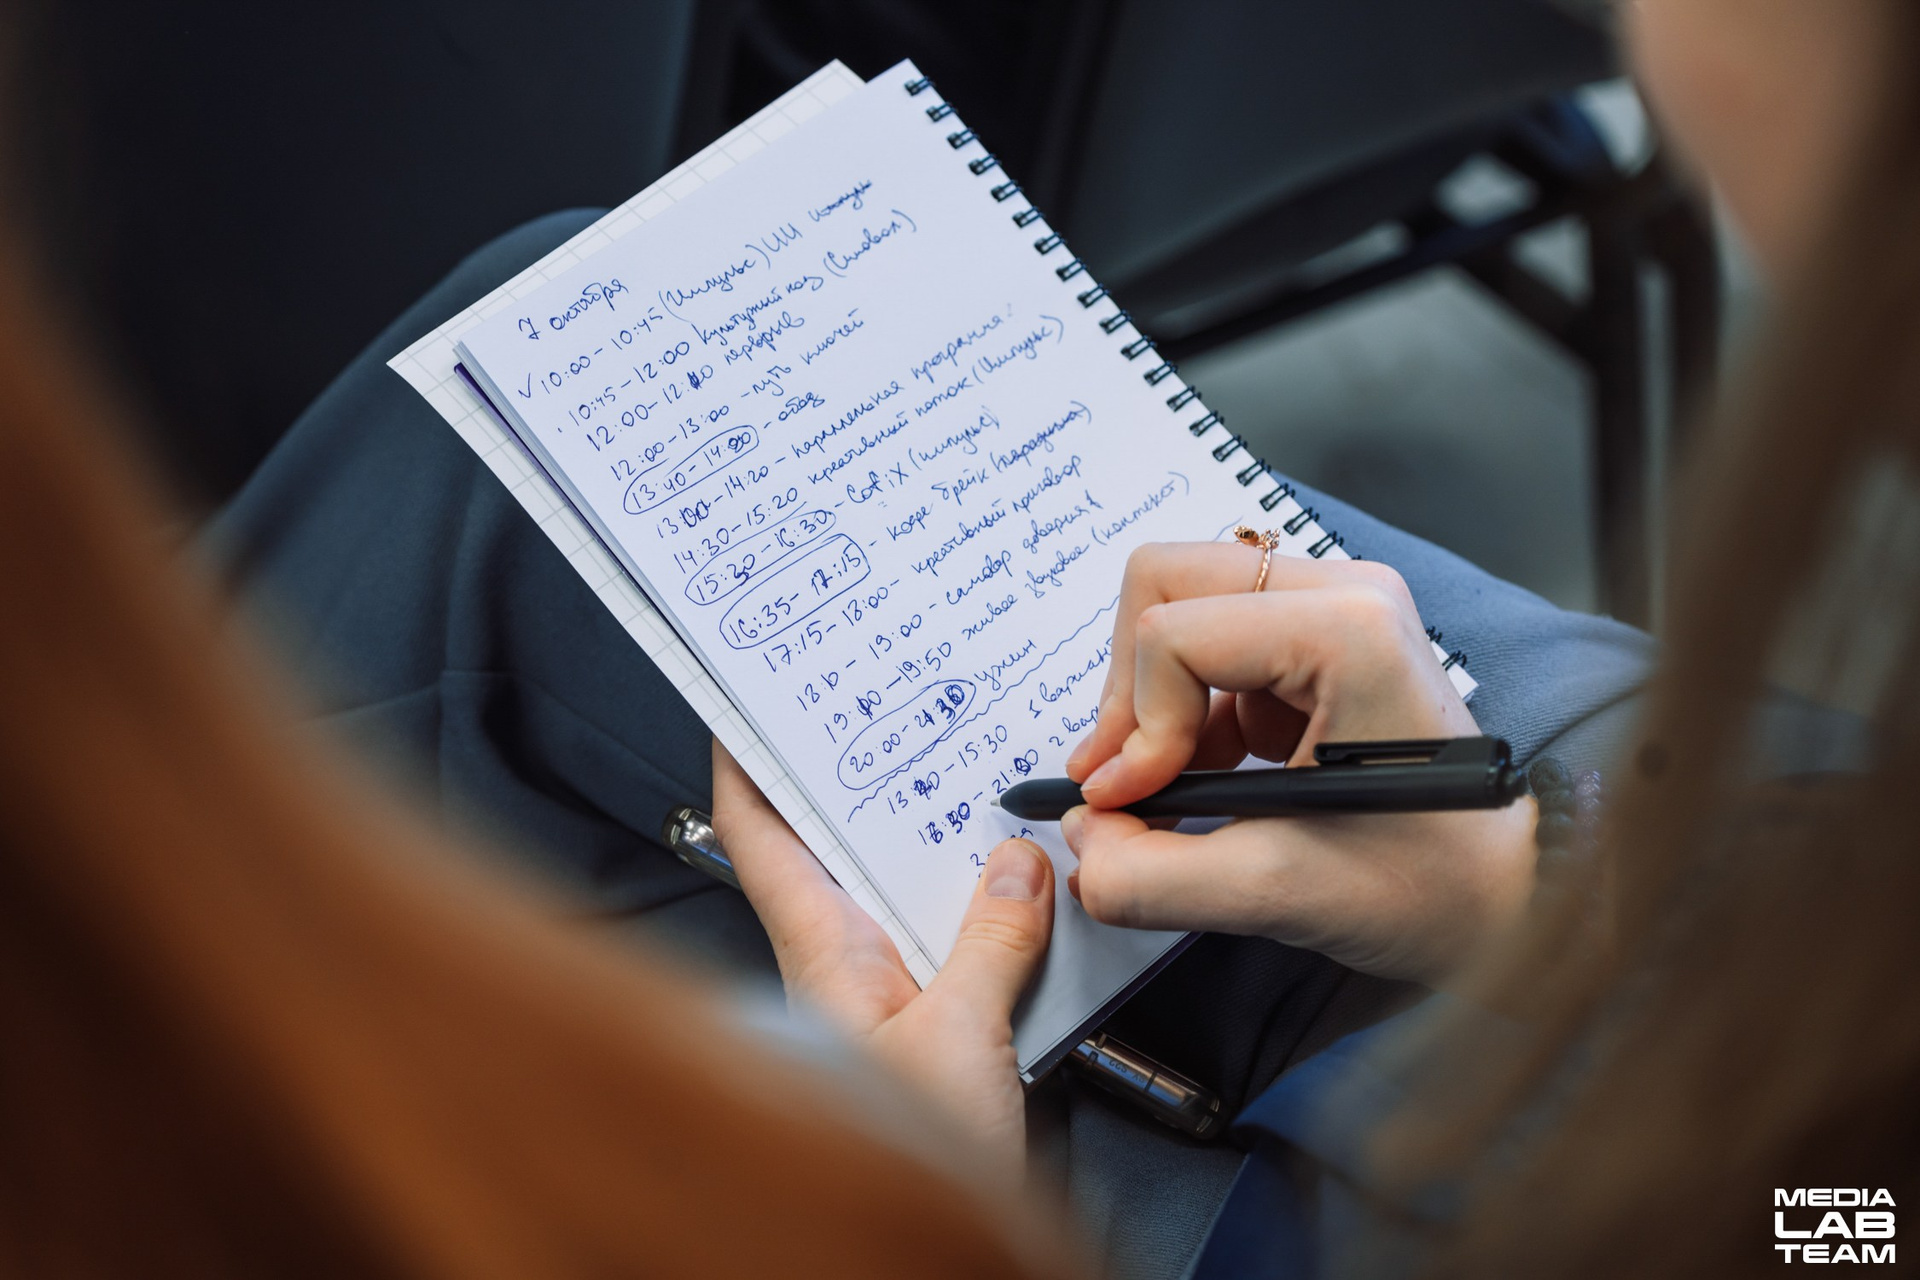 7 октября
✓ 10:00 - 10:45 (Импульс) ИИ Импульс
10:45 - 12:00 Культурный код (Символ)
12:00 - 12:10 перерыв
12:00 - 13:00 - путь ключей
13:40 - 14:20 - обед
13:00 - 14:20 - параллельная программа:
14:30 - 15:20 креативный поток (Импульс)
15:30 - 16:30 - (импульс)
16:35 - 17:15 - кофе брейк
17:15 - 18:00 - креативный приговор
18:10 - 19:00 - самовар доверия
19:10 - 19:50 живое звуковое (контекст)
20:00 - 21:30 ужин
13: - 15:30 1 вариант
- 21:00 2 вар
MEDIA
LAB
TEAM